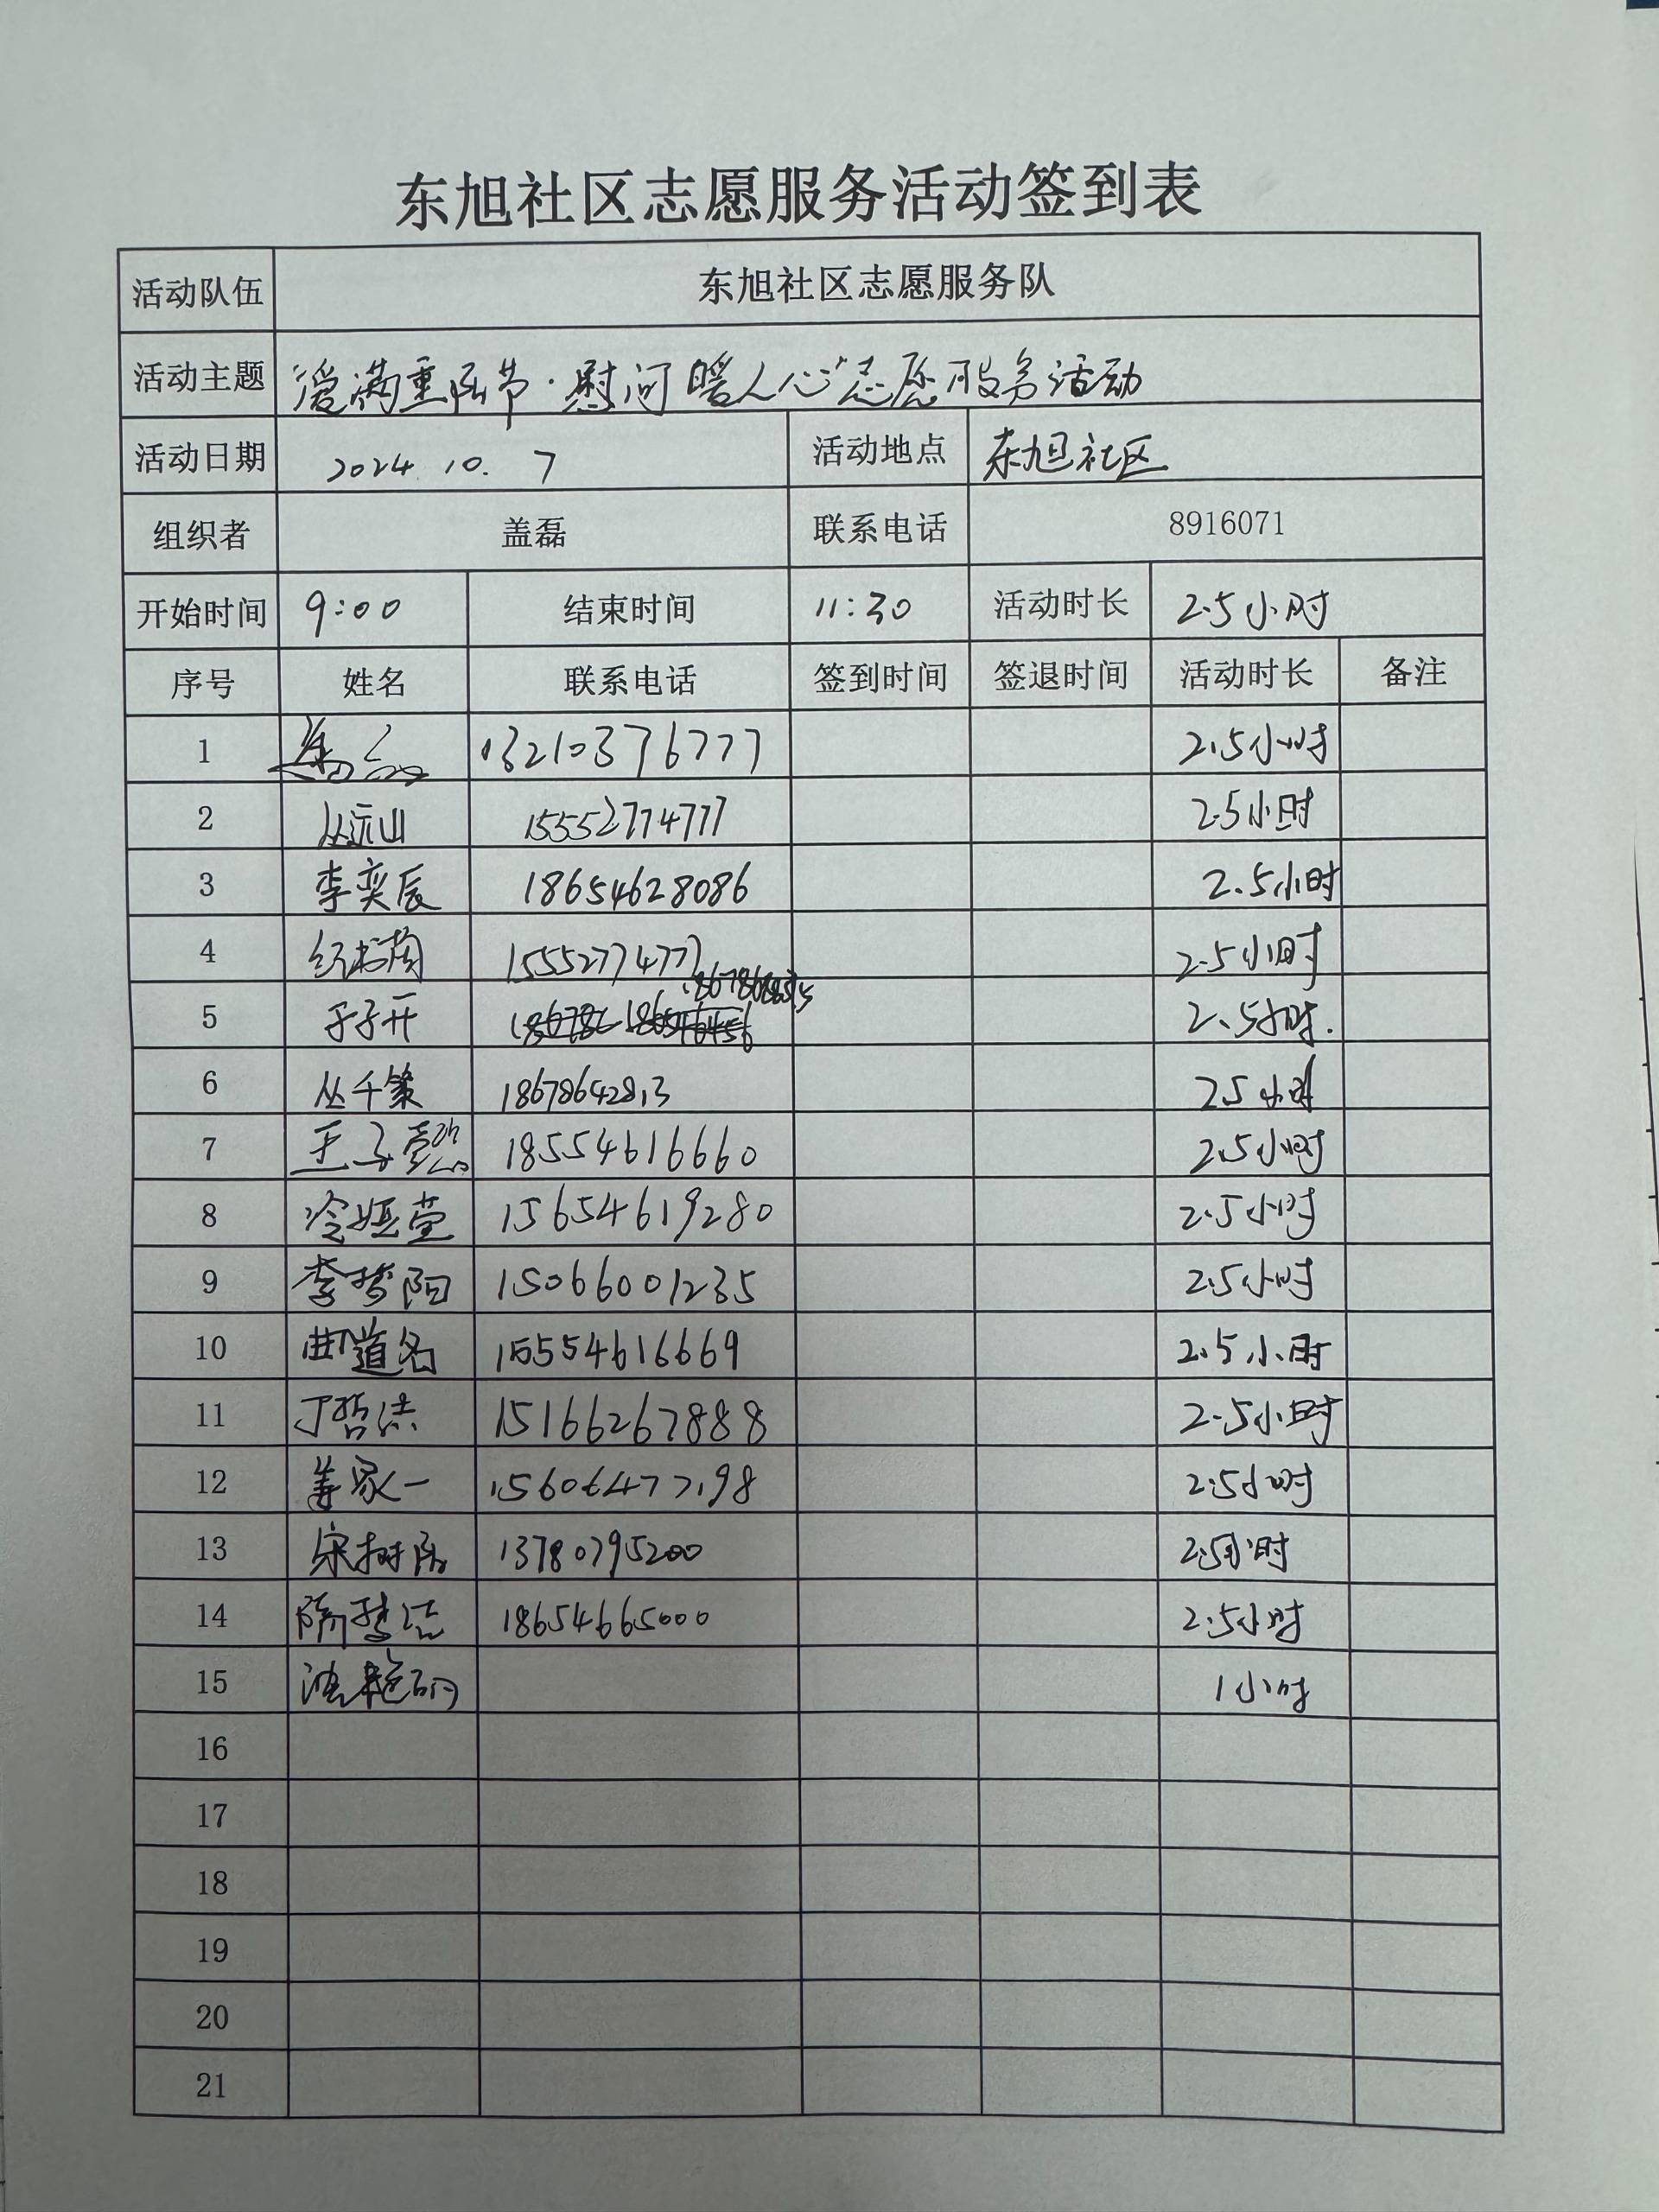 东旭社区志愿服务活动签到表
活动队伍 东旭社区志愿服务队
活动主题 爱满重阳节·慰问暖人心"志愿服务活动
活动日期 2024.10.7 活动地点 东旭社区
组织者 盖磊 联系电话 8916071
开始时间 9:00 结束时间 11:30 活动时长 2.5小时
序号 姓名 联系电话 签到时间 签退时间 活动时长 备注
1 盖磊 13210376777 2.5小时
2 丛远山 15552774777 2.5小时
3 李奕辰 18654628086 2.5小时
4 15552774777 2.5小时
5 于子开 2.5小时.
6 丛千策 18678642813 2.5小时
7 王子懿 18554616660 2.5小时
8 冷娅萱 15654619280 2.5小时
9 李梦阳 15066001235 2.5小时
10 曲道名 15554616669 2.5小时
11 丁哲浩 15166267888 2.5小时
12 姜家一 15606477198 2.5小时
13 宋树 13780795200 2.5小时
14 隋梦洁 18654665000 2.5小时
15 1小时
16
17
18
19
20
21